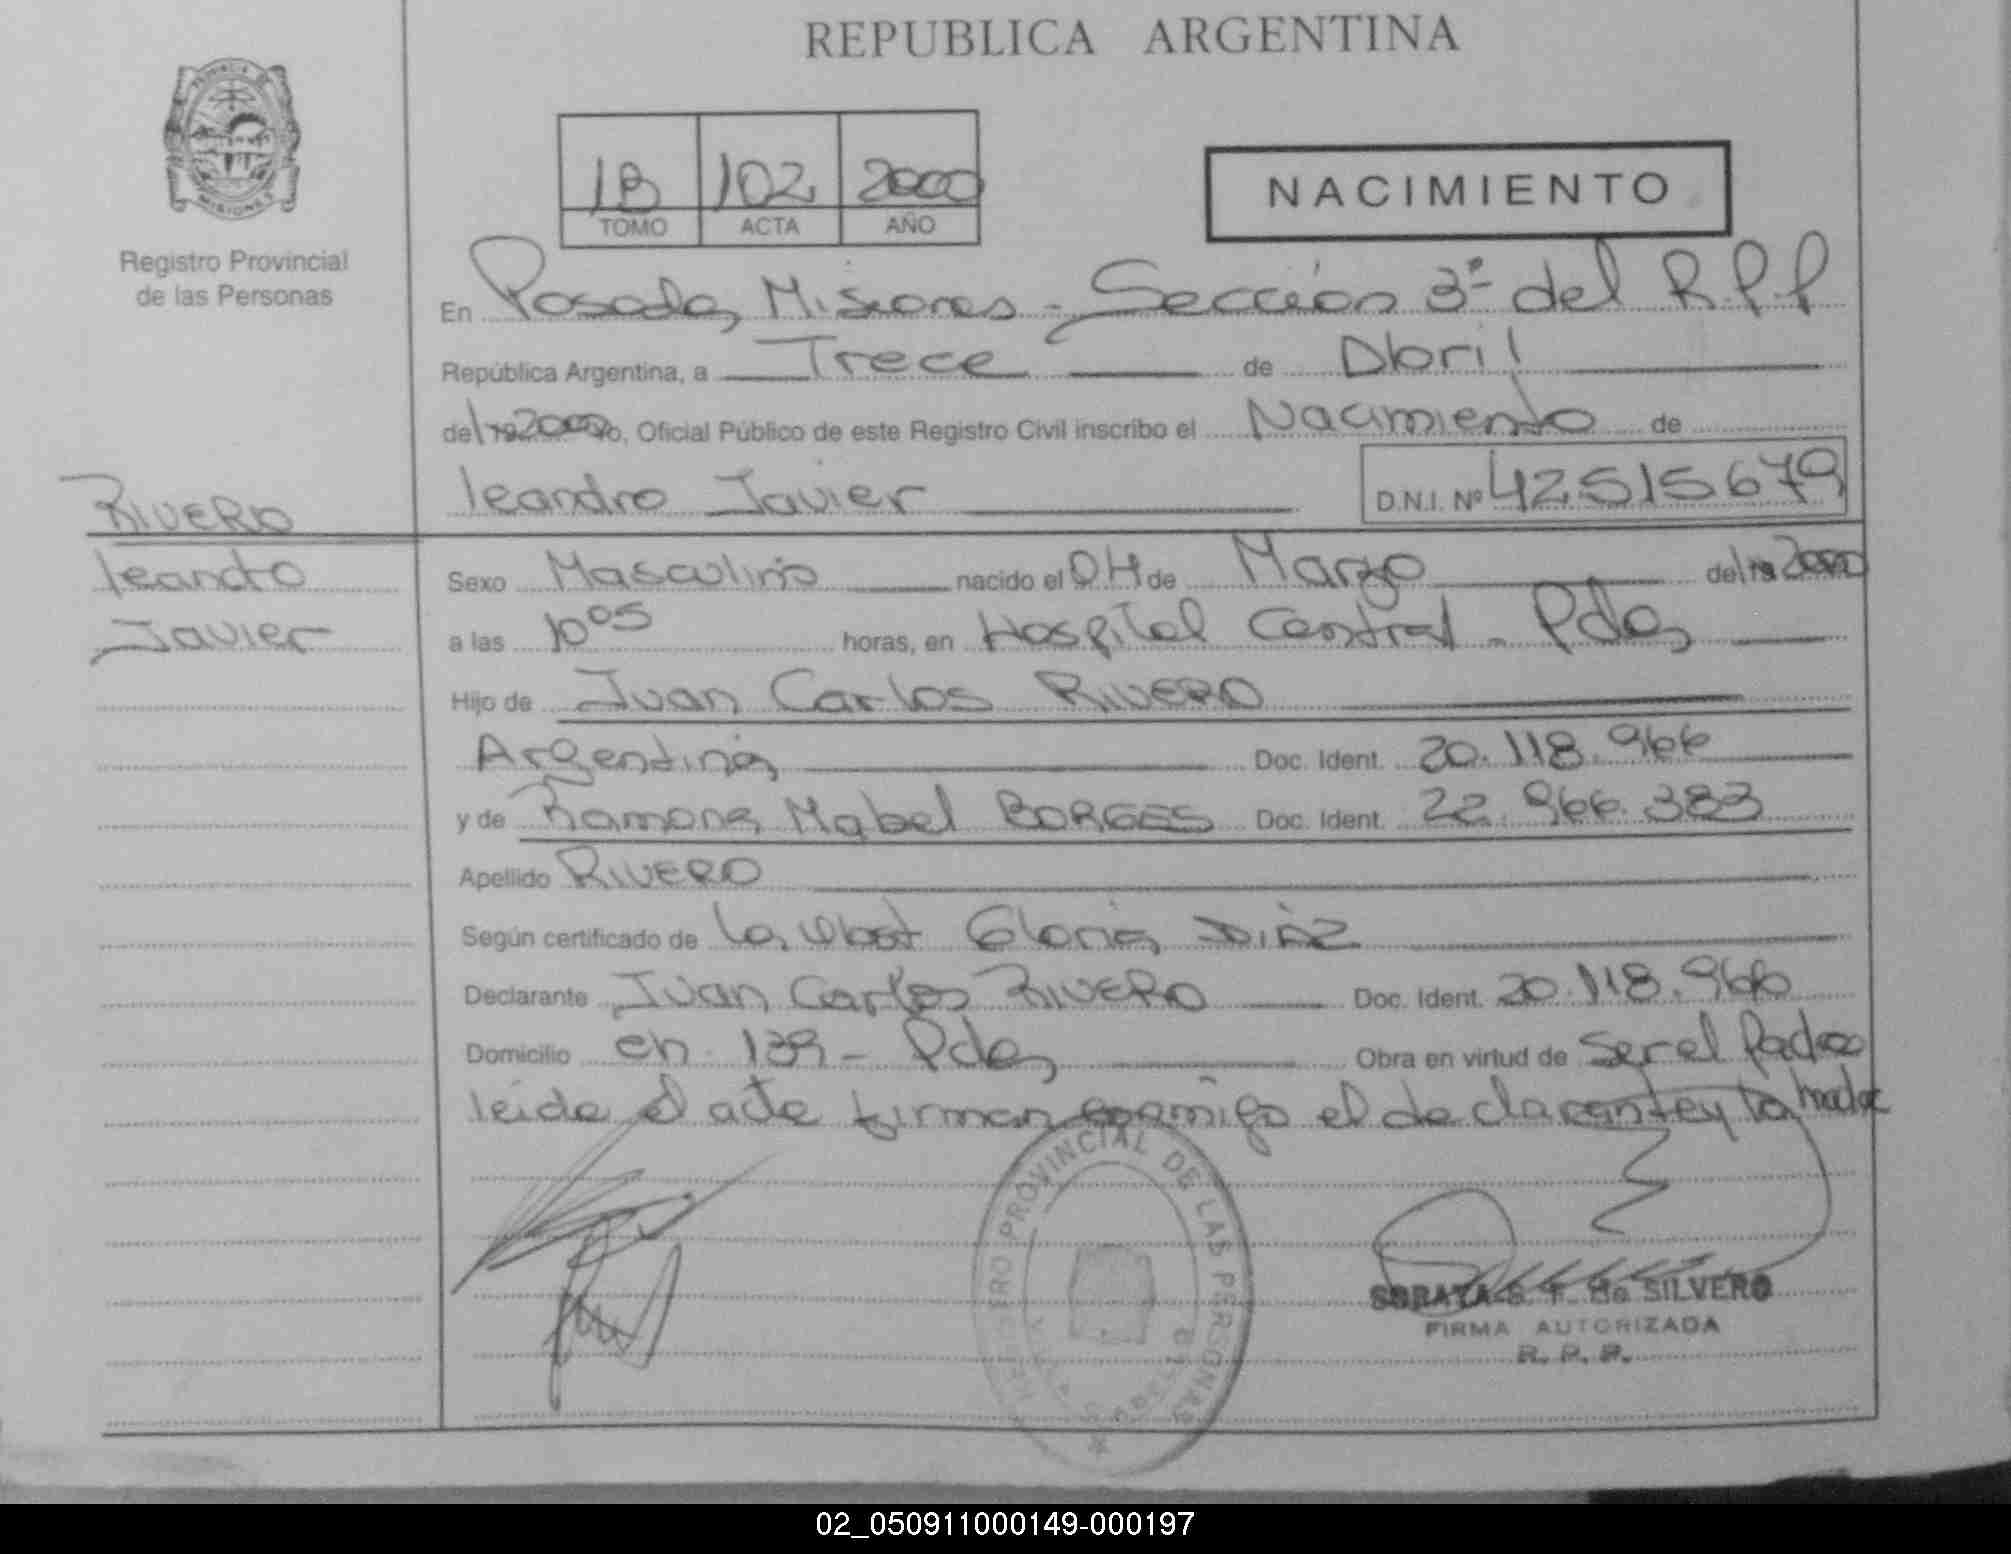 REPUBLICA ARGENTINA
PROVINCIA DE
MISIONES
Registro Provincial
de las Personas
1B 102 2000
TOMO ACTA AÑO
NACIMIENTO
En Posadas, Misiones - Sección 3ª del R.P.P
República Argentina, a Trece de Abril
del 2000, Oficial Público de este Registro Civil inscribo el Nacimiento de
Leandro Javier D.N.I. Nº 42515679
RIVERO
Leandro
Javier
Sexo Masculino nacido el 04 de Marzo del 2000
a las 10 05 horas, en Hospital Central - Pdas
Hijo de Juan Carlos RIVERO
Argentino Doc. Ident. 20.118.966
y de Ramona Mabel BORGES Doc. Ident. 22.966.383
Apellido RIVERO
Según certificado de la Obst Gloria DIAZ
Declarante Juan Carlos RIVERO Doc. Ident. 20.118.966
Domicilio Ch 139 - Pdas Obra en virtud de ser el Padre
leida el acta firman conmigo el declarante y la madre
REGISTRO PROVINCIAL DE LAS PERSONAS
SORAYA S. F. de SILVERO
FIRMA AUTORIZADA
R. P. P.
02_050911000149-000197